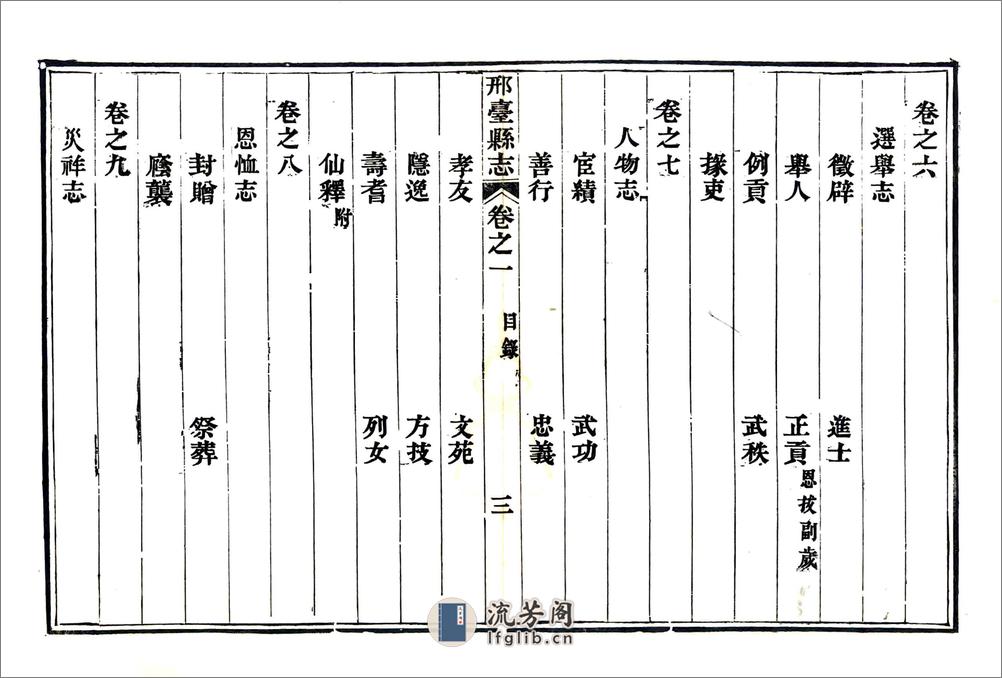 卷之六
選舉志
徵辟 進士
舉人 正貢 恩拔副歲
例貢 武秩
掾吏
卷之七
人物志
宦績 武功
善行 忠義
邢臺縣志 卷之一 目錄 三
孝友 文苑
隱逸 方技
壽耆 列女
仙釋 附
卷之八
恩恤志
封贈 祭葬
廕襲
卷之九
災祥志
流芳阁
lfglib.cn